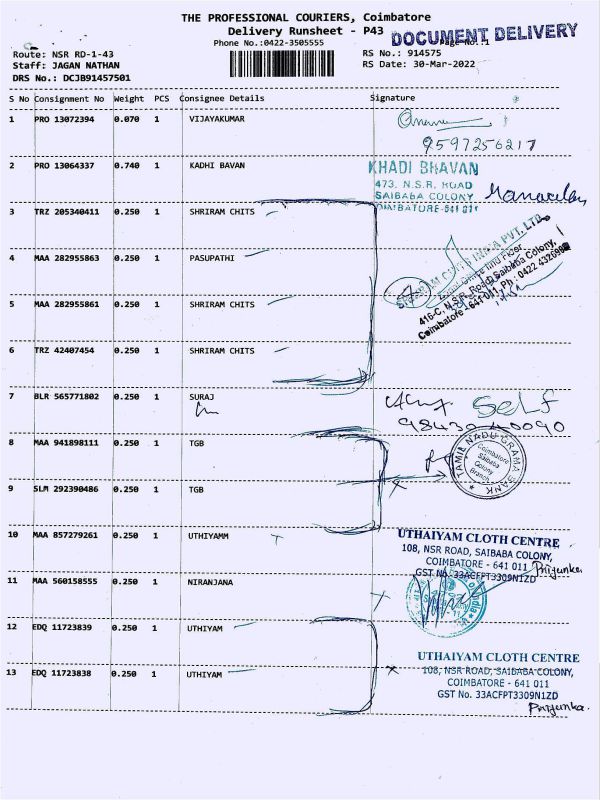 THE PROFESSIONAL COURIERS, Coimbatore
Delivery Runsheet - P43
DOCUMENT DELIVERY
Phone No.:0422-3505555
Page No.:1
Route: NSR RD-1-43
RS No.: 914575
Staff: JAGAN NATHAN
RS Date: 30-Mar-2022
DRS No.: DCJB91457501
S No Consignment No Weight PCS Consignee Details Signature
1 PRO 13072394 0.070 1 VIJAYAKUMAR
9597256217
2 PRO 13064337 0.740 1 KADHI BAVAN
KHADI BHAVAN
473. N.S.R. ROAD
SAIBABA COLONY
COIMBATORE-641 011
3 TRZ 205340411 0.250 1 SHRIRAM CHITS
4 MAA 282955863 0.250 1 PASUPATHI
5 MAA 282955861 0.250 1 SHRIRAM CHITS
416-C, N.S.R. Road, Saibaba Colony,
6 TRZ 42407454 0.250 1 SHRIRAM CHITS
7 BLR 565771802 0.250 1 SURAJ
Self
98430 40090
8 MAA 941898111 0.250 1 TGB
TAMIL NADU GRAMA BANK
Coimbatore
Saibaba
Colony
Branch
9 SLM 292390486 0.250 1 TGB
10 MAA 857279261 0.250 1 UTHIYAMM
UTHAIYAM CLOTH CENTRE
108, NSR ROAD, SAIBABA COLONY,
COIMBATORE - 641 011
GST No. 33ACFPT3309N1ZD
Priyanka
11 MAA 560158555 0.250 1 NIRANJANA
12 EDQ 11723839 0.250 1 UTHIYAM
13 EDQ 11723838 0.250 1 UTHIYAM
UTHAIYAM CLOTH CENTRE
108, NSR ROAD, SAIBABA COLONY,
COIMBATORE - 641 011
GST No. 33ACFPT3309N1ZD
Priyanka